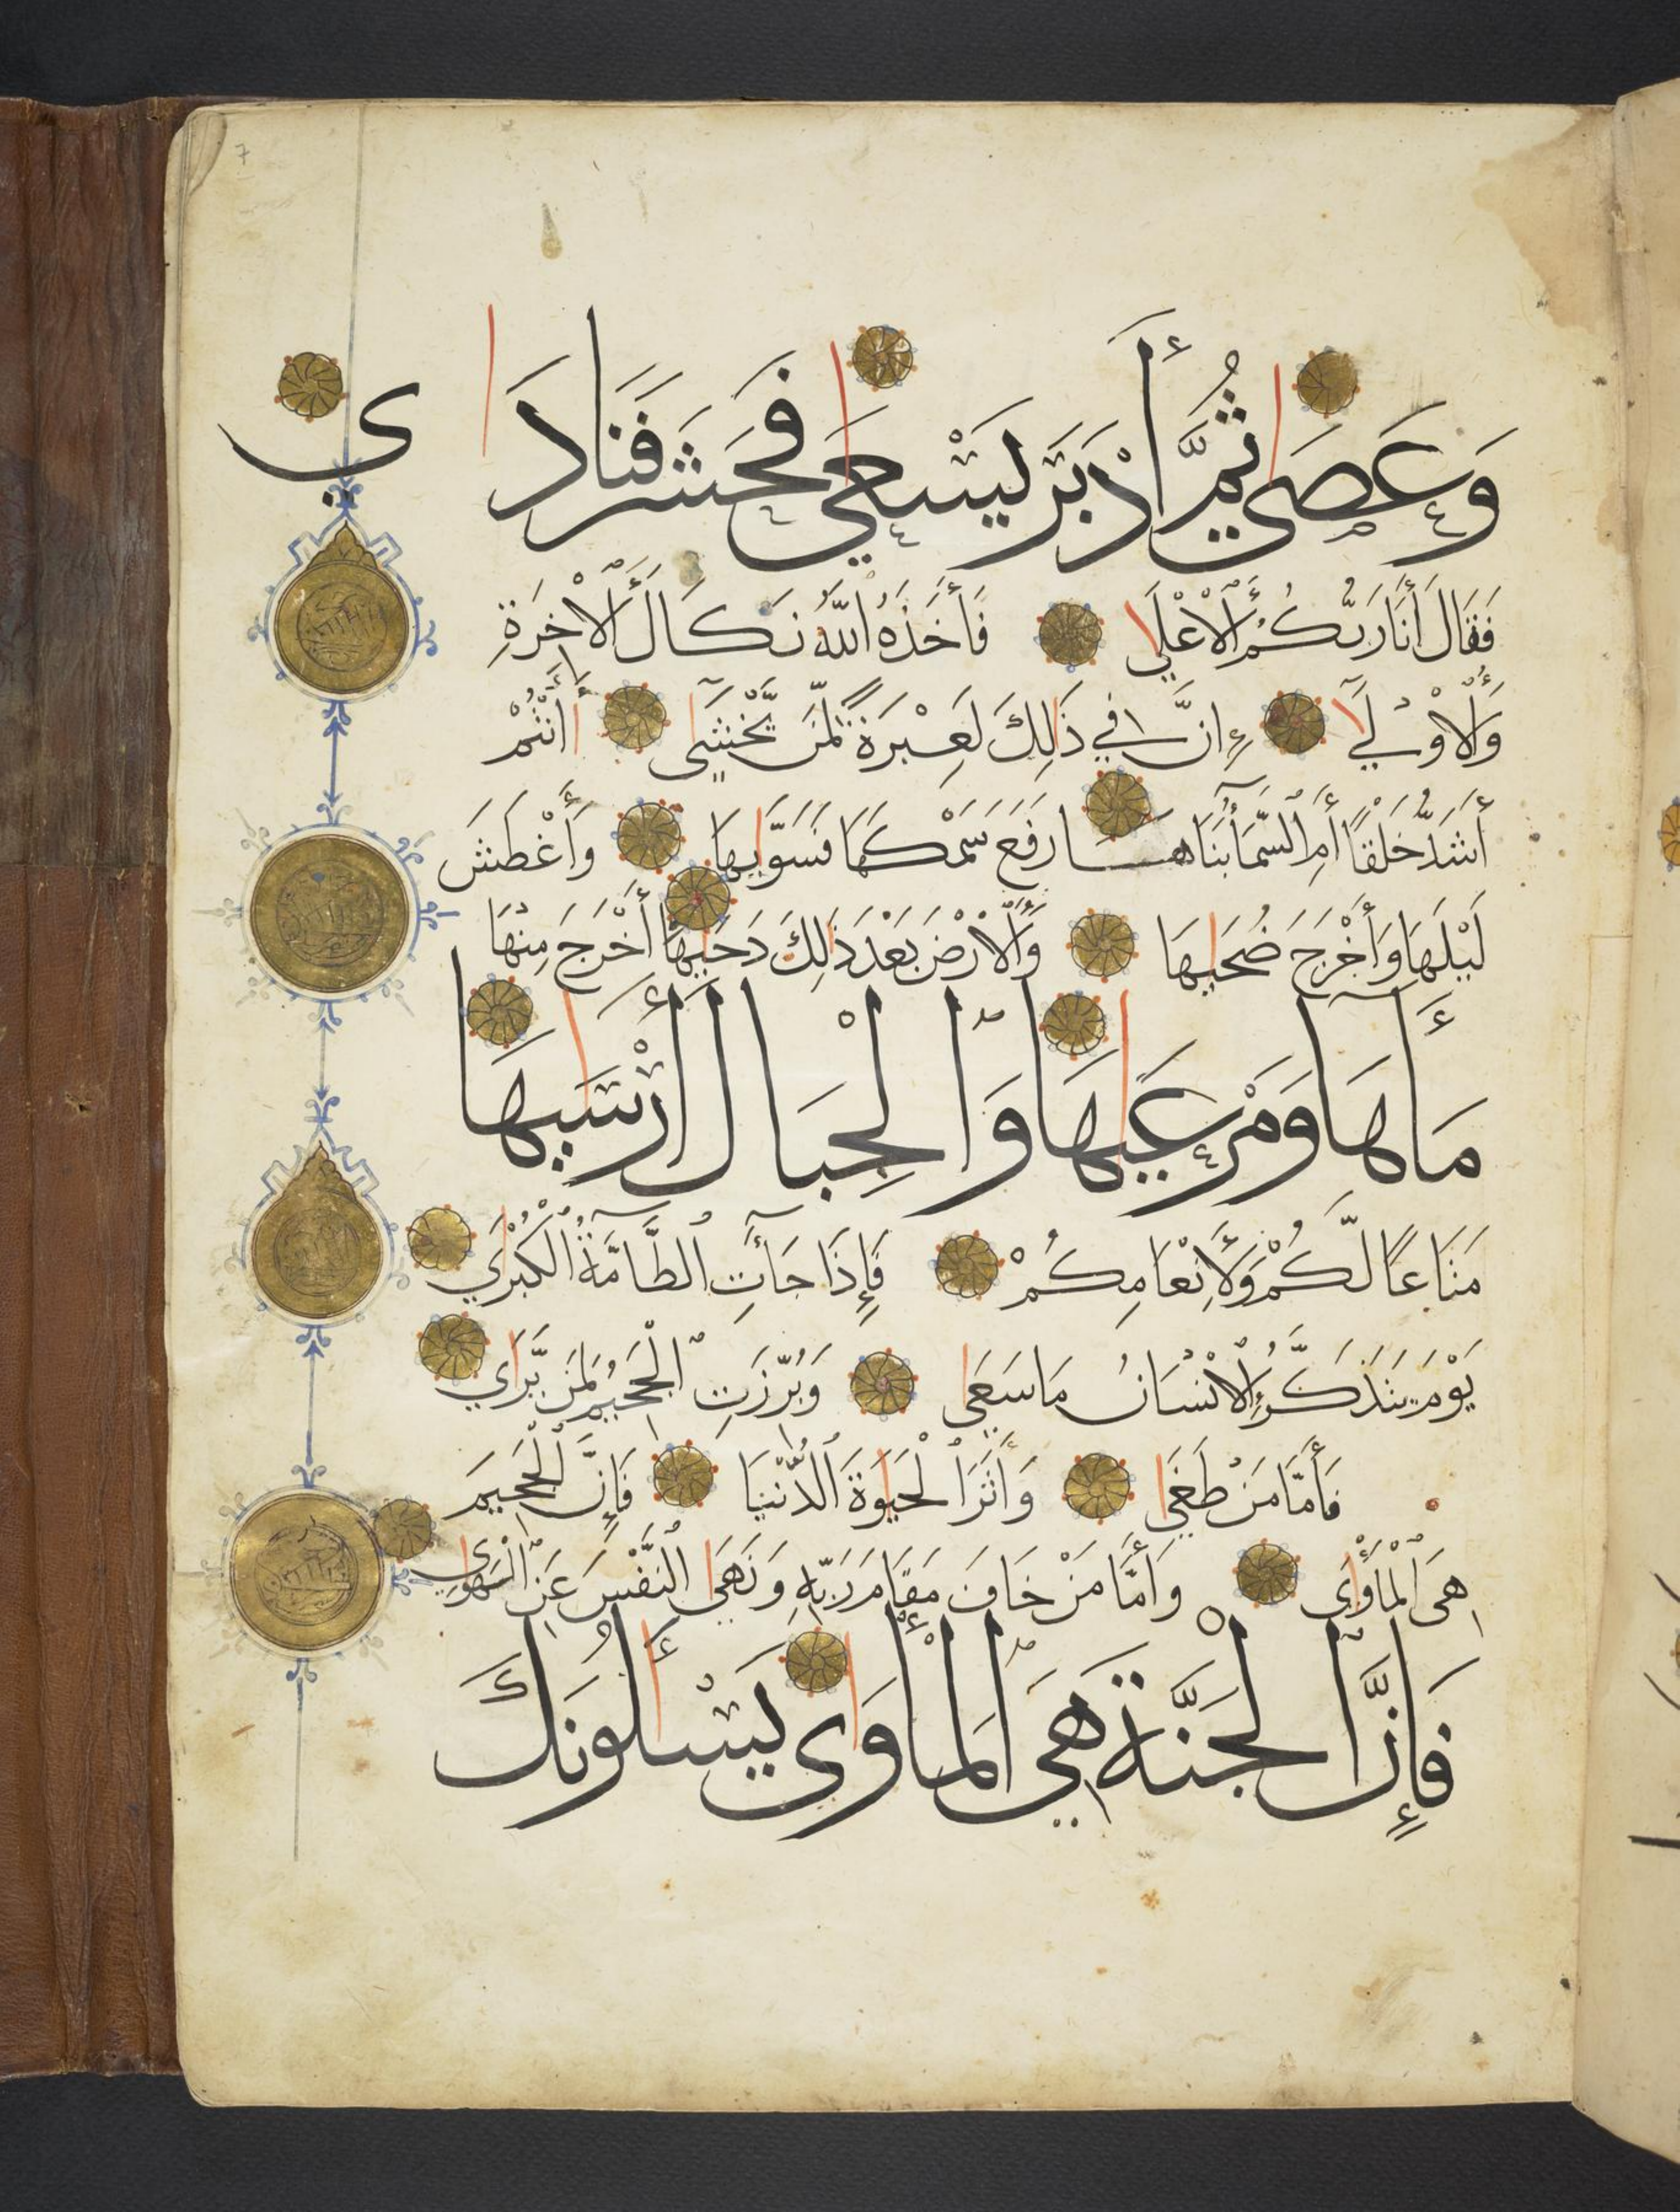 وَعَصَى ثُمَّ أَدْبَرَ يَسْعَى فَحَشَرَ فَنَادَى
فَقَالَ أَنَا رَبُّكُمُ الْأَعْلَى فَأَخَذَهُ اللَّهُ نَكَالَ الْآخِرَةِ
وَالْأُولَى إِنَّ فِي ذَلِكَ لَعِبْرَةً لِّمَن يَّخْشَى أَأَنتُمْ
أَشَدُّ خَلْقًا أَمِ السَّمَآءُ بَنَاهَا رَفَعَ سَمْكَهَا فَسَوَّيهَا وَأَغْطَشَ
لَيْلَهَا وَأَخْرَجَ ضُحَيهَا وَالْأَرْضَ بَعْدَ ذَلِكَ دَحَيهَا أَخْرَجَ مِنْهَا
مَآءَهَا وَمَرْعَيهَا وَالْجِبَالَ أَرْسَيهَا
مَتَاعًا لَّكُمْ وَلِأَنْعَامِكُمْ فَإِذَا جَآءَتِ الطَّآمَّةُ الْكُبْرَى
يَوْمَ يَتَذَكَّرُ الْإِنْسَانُ مَا سَعَى وَبُرِّزَتِ الْجَحِيمُ لِمَن يَّرَى
فَأَمَّا مَنْ طَغَى وَآثَرَ الْحَيَوةَ الدُّنْيَا فَإِنَّ الْجَحِيمَ
هِيَ الْمَأْوَى وَأَمَّا مَنْ خَافَ مَقَامَ رَبِّهِ وَنَهَى النَّفْسَ عَنِ الْهَوَى
فَإِنَّ الْجَنَّةَ هِيَ الْمَأْوَى يَسْأَلُونَكَ